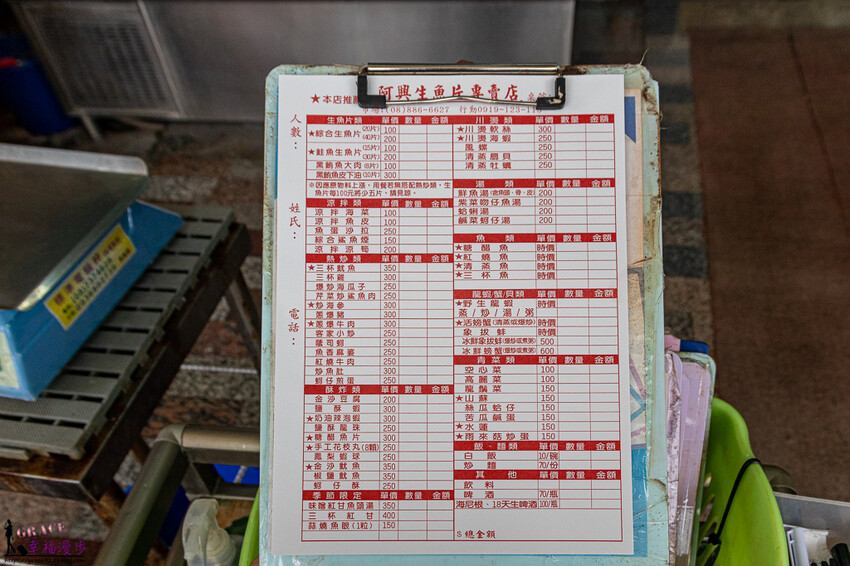 ★本店推薦
阿興生魚片專賣店
市場:(08)886-6627 行動0919-123-11
人數：
姓氏：
電話：
生魚片類 單價 數量 金額
★綜合生魚片 (20片) 100
(40片) 200
★鮭魚生魚片 (15片) 100
(30片) 200
黑鮪魚大肉(8片) 100
黑鮪魚皮下油(10片) 100
※因應原物料上漲,用餐若無搭配熱炒類,生
魚片每100元將少五片、請見諒。
涼拌類 單價 數量 金額
涼拌海菜 100
涼拌魚皮 100
魚蛋沙拉 250
綜合鯊魚煙 150
涼拌涼筍 200
熱炒類 單價 數量 金額
★三杯魷魚 350
三杯雞 300
爆炒海瓜子 250
芹菜炒鯊魚肉 250
★炒海參 300
蔥爆豬 300
★蔥爆牛肉 300
客家小炒 250
蘿司蝦 250
魚香麻婆 250
紅燒牛肉 250
炒魚肚 250
蚵仔煎蛋 250
酥炸類 單價 數量 金額
金沙豆腐 200
鹽酥蝦 300
★奶油辣泡蝦 300
鹽酥龍珠 250
★糖醋魚片 300
★手工花枝丸(8顆) 250
鳳梨蝦球 250
★金沙魷魚 350
椒鹽魷魚 350
蚵仔酥 250
季節限定 單價 數量 金額
味噌紅甘魚頭湯 350
三杯紅甘 400
蒜燒魚眼(1粒) 150
川燙類 單價 數量 金額
★川燙軟絲 300
★川燙海蝦 250
風螺 250
清蒸扇貝 250
清蒸牡蠣 250
湯類 單價 數量 金額
鮮魚湯(含魚頭、骨、皮) 200
紫菜吻仔魚湯 200
蛤蜊湯 200
鹹菜蚵仔湯 200
魚類 單價 數量 金額
★糖醋魚 時價
★紅燒魚 時價
★清蒸魚 時價
★三杯魚 時價
龍蝦蟹貝類 單價 數量 金額
★野生龍蝦 時價
蒸/炒/湯/粥
★活螃蟹(清蒸或爆炒) 時價
象拔蚌 時價
冰鮮象拔蚌(爆炒或煮粥) 500
冰鮮螃蟹(爆炒或煮粥) 600
青菜類 單價 數量 金額
空心菜 100
高麗菜 100
龍鬚菜 150
★山蘇 150
絲瓜蛤仔 150
苦瓜鹹蛋 150
★水蓮 150
★雨來菇炒蛋 150
飯、麵類 單價 數量 金額
白飯 10/碗
炒麵 70/份
其他 單價 數量 金額
飲料
啤酒 70/瓶
海尼根、18天生啤酒 100/瓶
$總金額
GRACE
幸福漫步